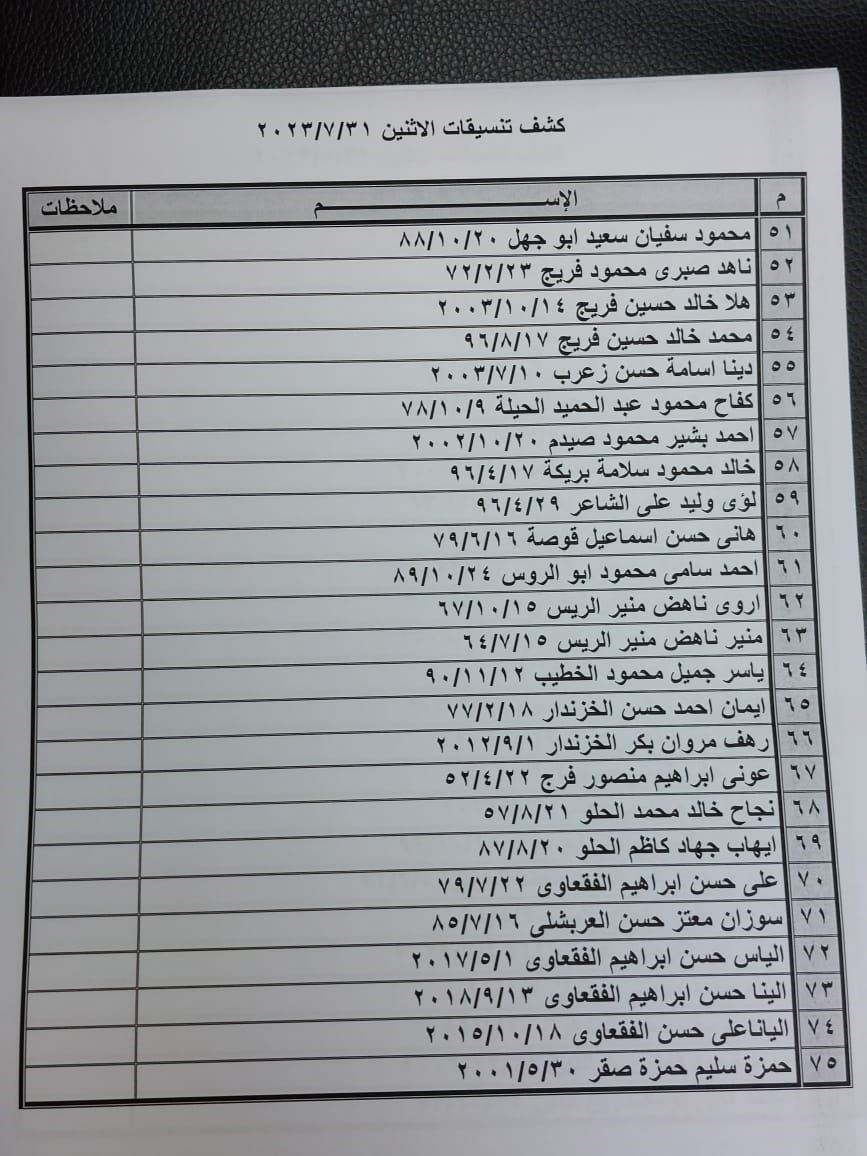 كشف تنسيقات الاثنين ٢٠٢٣/٧/٣١
م الإســــم ملاحظات
٥١ محمود سفيان سعيد ابو جهل ٨٨/١٠/٢٠
٥٢ ناهد صبرى محمود فريج ٧٢/٢/٢٣
٥٣ هلا خالد حسين فريج ٢٠٠٣/١٠/١٤
٥٤ محمد خالد حسين فريج ٩٦/٨/١٧
٥٥ دينا اسامة حسن زعرب ٢٠٠٣/٧/١٠
٥٦ كفاح محمود عبد الحميد الحيلة ٧٨/١٠/٩
٥٧ احمد بشير محمود صيدم ٢٠٠٢/١٠/٢٠
٥٨ خالد محمود سلامة بريكة ٩٦/٤/١٧
٥٩ لؤى وليد على الشاعر ٩٦/٤/٢٩
٦٠ هانى حسن اسماعيل قوصة ٧٩/٦/١٦
٦١ احمد سامى محمود ابو الروس ٨٩/١٠/٢٤
٦٢ اروى ناهض منير الريس ٦٧/١٠/١٥
٦٣ منير ناهض منير الريس ٦٤/٧/١٥
٦٤ ياسر جميل محمود الخطيب ٩٠/١١/١٢
٦٥ ايمان احمد حسن الخزندار ٧٧/٢/١٨
٦٦ رهف مروان بكر الخزندار ٢٠١٢/٩/١
٦٧ عونى ابراهيم منصور فرج ٥٢/٤/٢٢
٦٨ نجاح خالد محمد الحلو ٥٧/٨/٢١
٦٩ ايهاب جهاد كاظم الحلو ٨٧/٨/٢٠
٧٠ على حسن ابراهيم الفقعاوى ٧٩/٧/٢٢
٧١ سوزان معتز حسن العربشلى ٨٥/٧/١٦
٧٢ الياس حسن ابراهيم الفقعاوى ٢٠١٧/٥/١
٧٣ الينا حسن ابراهيم الفقعاوى ٢٠١٨/٩/١٣
٧٤ الياناعلى حسن الفقعاوى ٢٠١٥/١٠/١٨
٧٥ حمزة سليم حمزة صقر ٢٠٠١/٥/٣٠